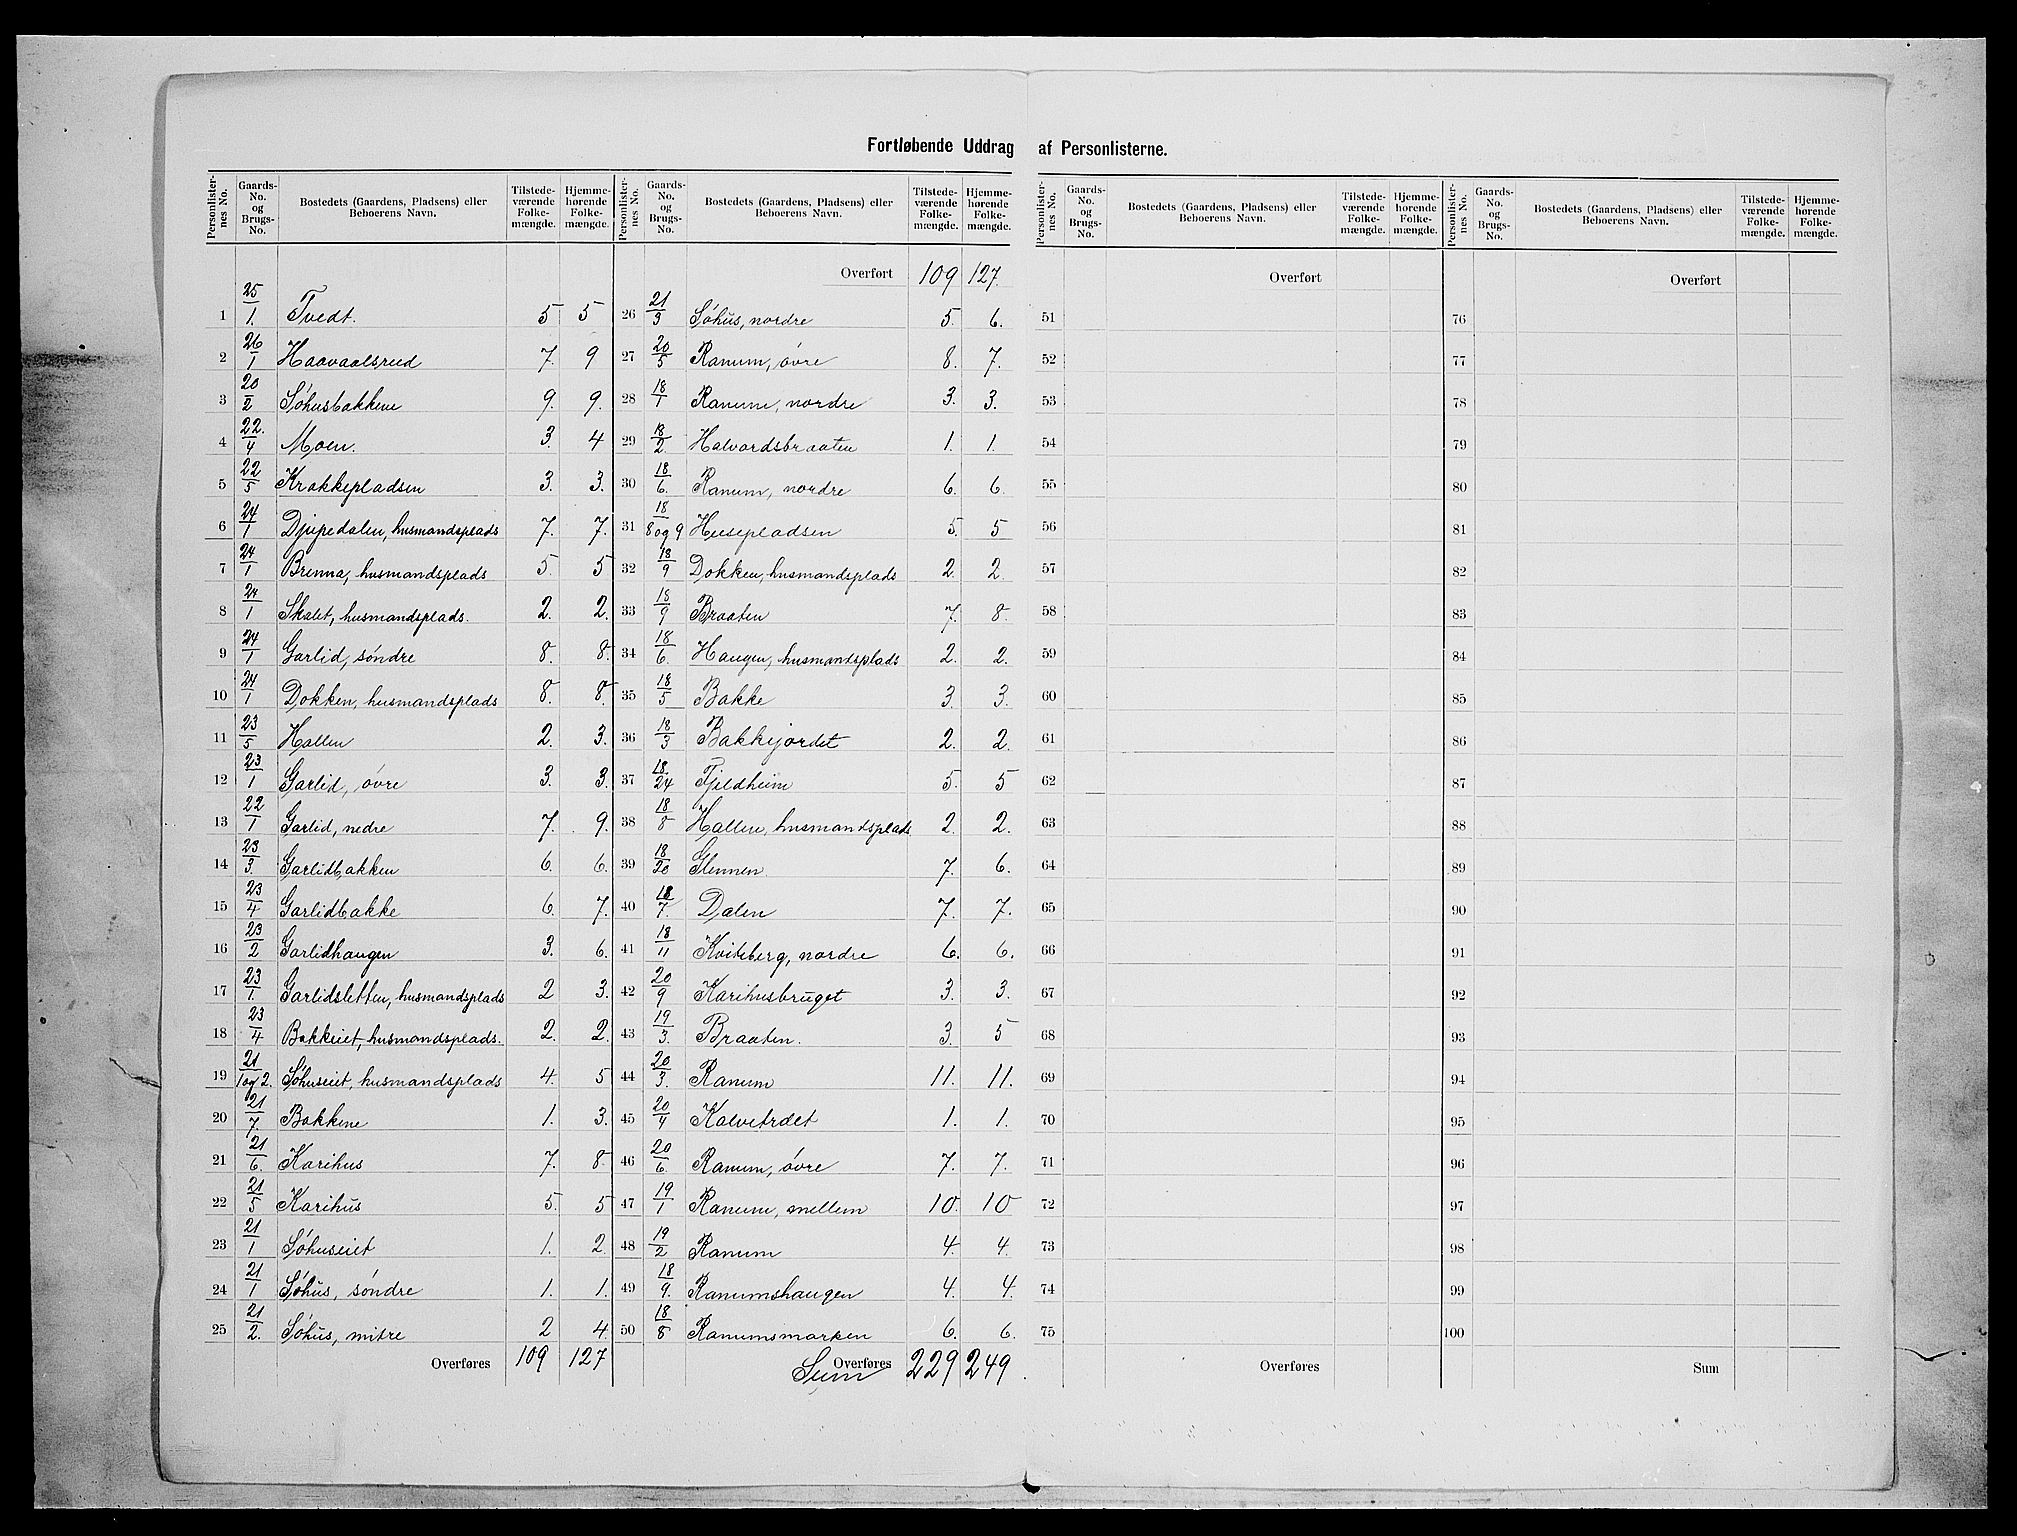 Fortløbende Uddrag af Personlisterne.
Personlister-nes No. | Gaards-No. og Brugs-No. | Bostedets (Gaardens, Pladsens) eller Beboerens Navn. | Tilstede-værende Folke-mængde. | Hjemme-hørende Folke-mængde.
1 25/1. Tvedt. 5 5
2 26/1 Haavaalsrud 7. 9
3 20/2 Søhusbakkene 9. 9.
4 22./4 Moen. 3. 4
5 22/5 Krakkepladsen 3. 3.
6 24/1 Djupedalen, husmandsplads 7. 7.
7 24/1 Brenna, husmandsplads 5. 5
8 24/1 Skalet, husmandsplads. 2. 2.
9 24/1 Garlid, søndre 8. 8.
10 24/1 Dokken, husmandsplads 8. 8.
11 23/5 Hallen 2. 3.
12 23/1 Garlid, øvre 3. 3.
13 22/1 Garlid, nedre 7. 9.
14 23/3. Garlidbakken 6. 6.
15 23/4 Garlidbakke 6. 7.
16 23/2 Garlidhaugen 3. 6.
17 23/1. Garlidsletten, husmandsplads 2 3.
18 23/4 Bakkeiet, husmandsplads. 2. 2.
19 21/1 og 2. Søhuseiet, husmandsplads 4. 5
20 21/7. Bakkene 1. 3.
21 21/6. Karihus 7. 8.
22 21/5 Karihus 5. 5
23 21/1 Søhuseiet 1. 2.
24 21/1 Søhus, søndre 1. 1.
25 21/2. Søhus, mitre 2 4.
Overføres 109 127
Personlister-nes No. | Gaards-No. og Brugs-No. | Bostedets (Gaardens, Pladsens) eller Beboerens Navn. | Tilstede-værende Folke-mængde. | Hjemme-hørende Folke-mængde.
Overført 109 127.
26 21/3 Søhus, nordre 5. 6.
27 20/5 Ranum, øvre 8. 7.
28 18/1 Ranum, nordre 3. 3.
29 18/2. Halvordsbraaten 1. 1.
30 18/6. Ranum, nordre 6. 6.
31 18/8 og 9 Husepladsen 5. 5
32 18/9 Dokken, husmandsplads 2. 2.
33 18/9 Braaten 7. 8.
34 18/6. Haugen, husmandsplads 2. 2.
35 18/5 Bakke 3. 3.
36 18/3 Bakkejordet 2. 2.
37 18./24 Fjeldheim 5. 5
38 18/8 Hallen, husmandsplads 2. 2.
39 18/20 Glennen 7. 6.
40 18/7. Dalen 7. 7.
41 18/11 Kviteberg, nordre 6. 6.
42 20/9 Karihusbruget 3. 3.
43 19/3. Braaten. 3. 5
44 20/3. Ranum 11. 11.
45 20/4 Kalvetrdet 1. 1.
46 20/6. Ranum, øvre 7. 7.
47 19/1 Ranum, mellem 10. 10
48 19/2 Ranum 4. 4.
49 18/9. Ranumshaugen 4. 4.
50 18/8 Ranumsmarken 6. 6.
Overføres Sum 229 249
Personlister-nes No. | Gaards-No. og Brugs-No. | Bostedets (Gaardens, Pladsens) eller Beboerens Navn. | Tilstede-værende Folke-mængde. | Hjemme-hørende Folke-mængde.
Overført
51
52
53
54
55
56
57
58
59
60
61
62
63
64
65
66
67
68
69
70
71
72
73
74
75
Overføres
Personlister-nes No. | Gaards-No. og Brugs-No. | Bostedets (Gaardens, Pladsens) eller Beboerens Navn. | Tilstede-værende Folke-mængde. | Hjemme-hørende Folke-mængde.
Overført
76
77
78
79
80
81
82
83
84
85
86
87
88
89
90
91
92
93
94
95
96
97
98
99
100
Sum